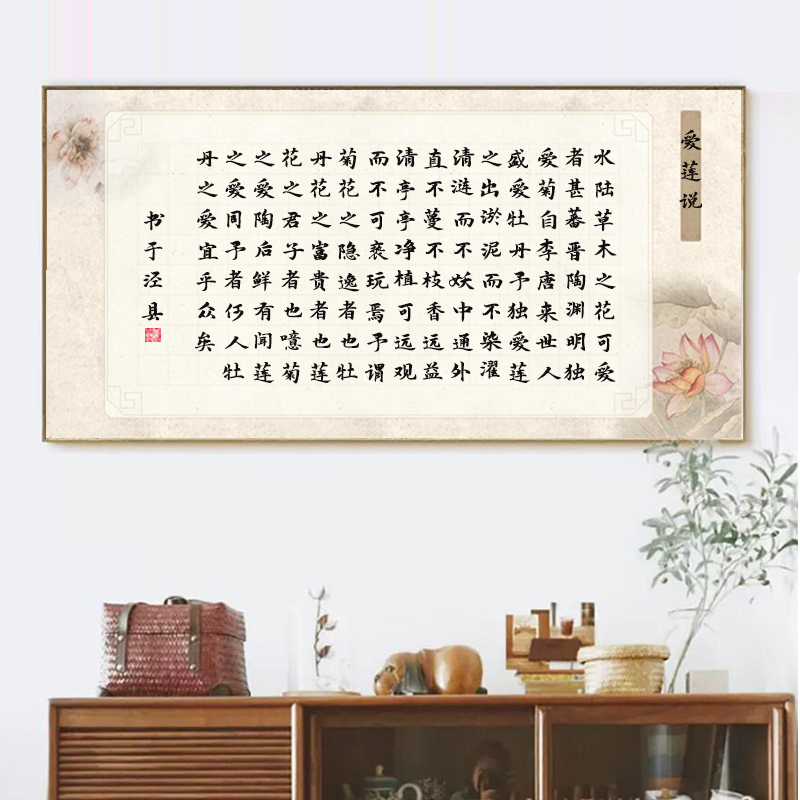 爱莲说
水陆草木之花可爱
者甚蕃晋陶渊明独
爱菊自李唐来世人
盛爱牡丹予独爱莲
之出淤泥而不染濯
清涟而不妖中通外
直不蔓不枝香远益
清亭亭净植可远观
而不可亵玩焉予谓
菊花之隐逸者也牡
丹花之富贵者也莲
花之君子者也噫菊
之爱陶后鲜有闻莲
之爱同予者何人牡
丹之爱宜乎众矣
书于泾县